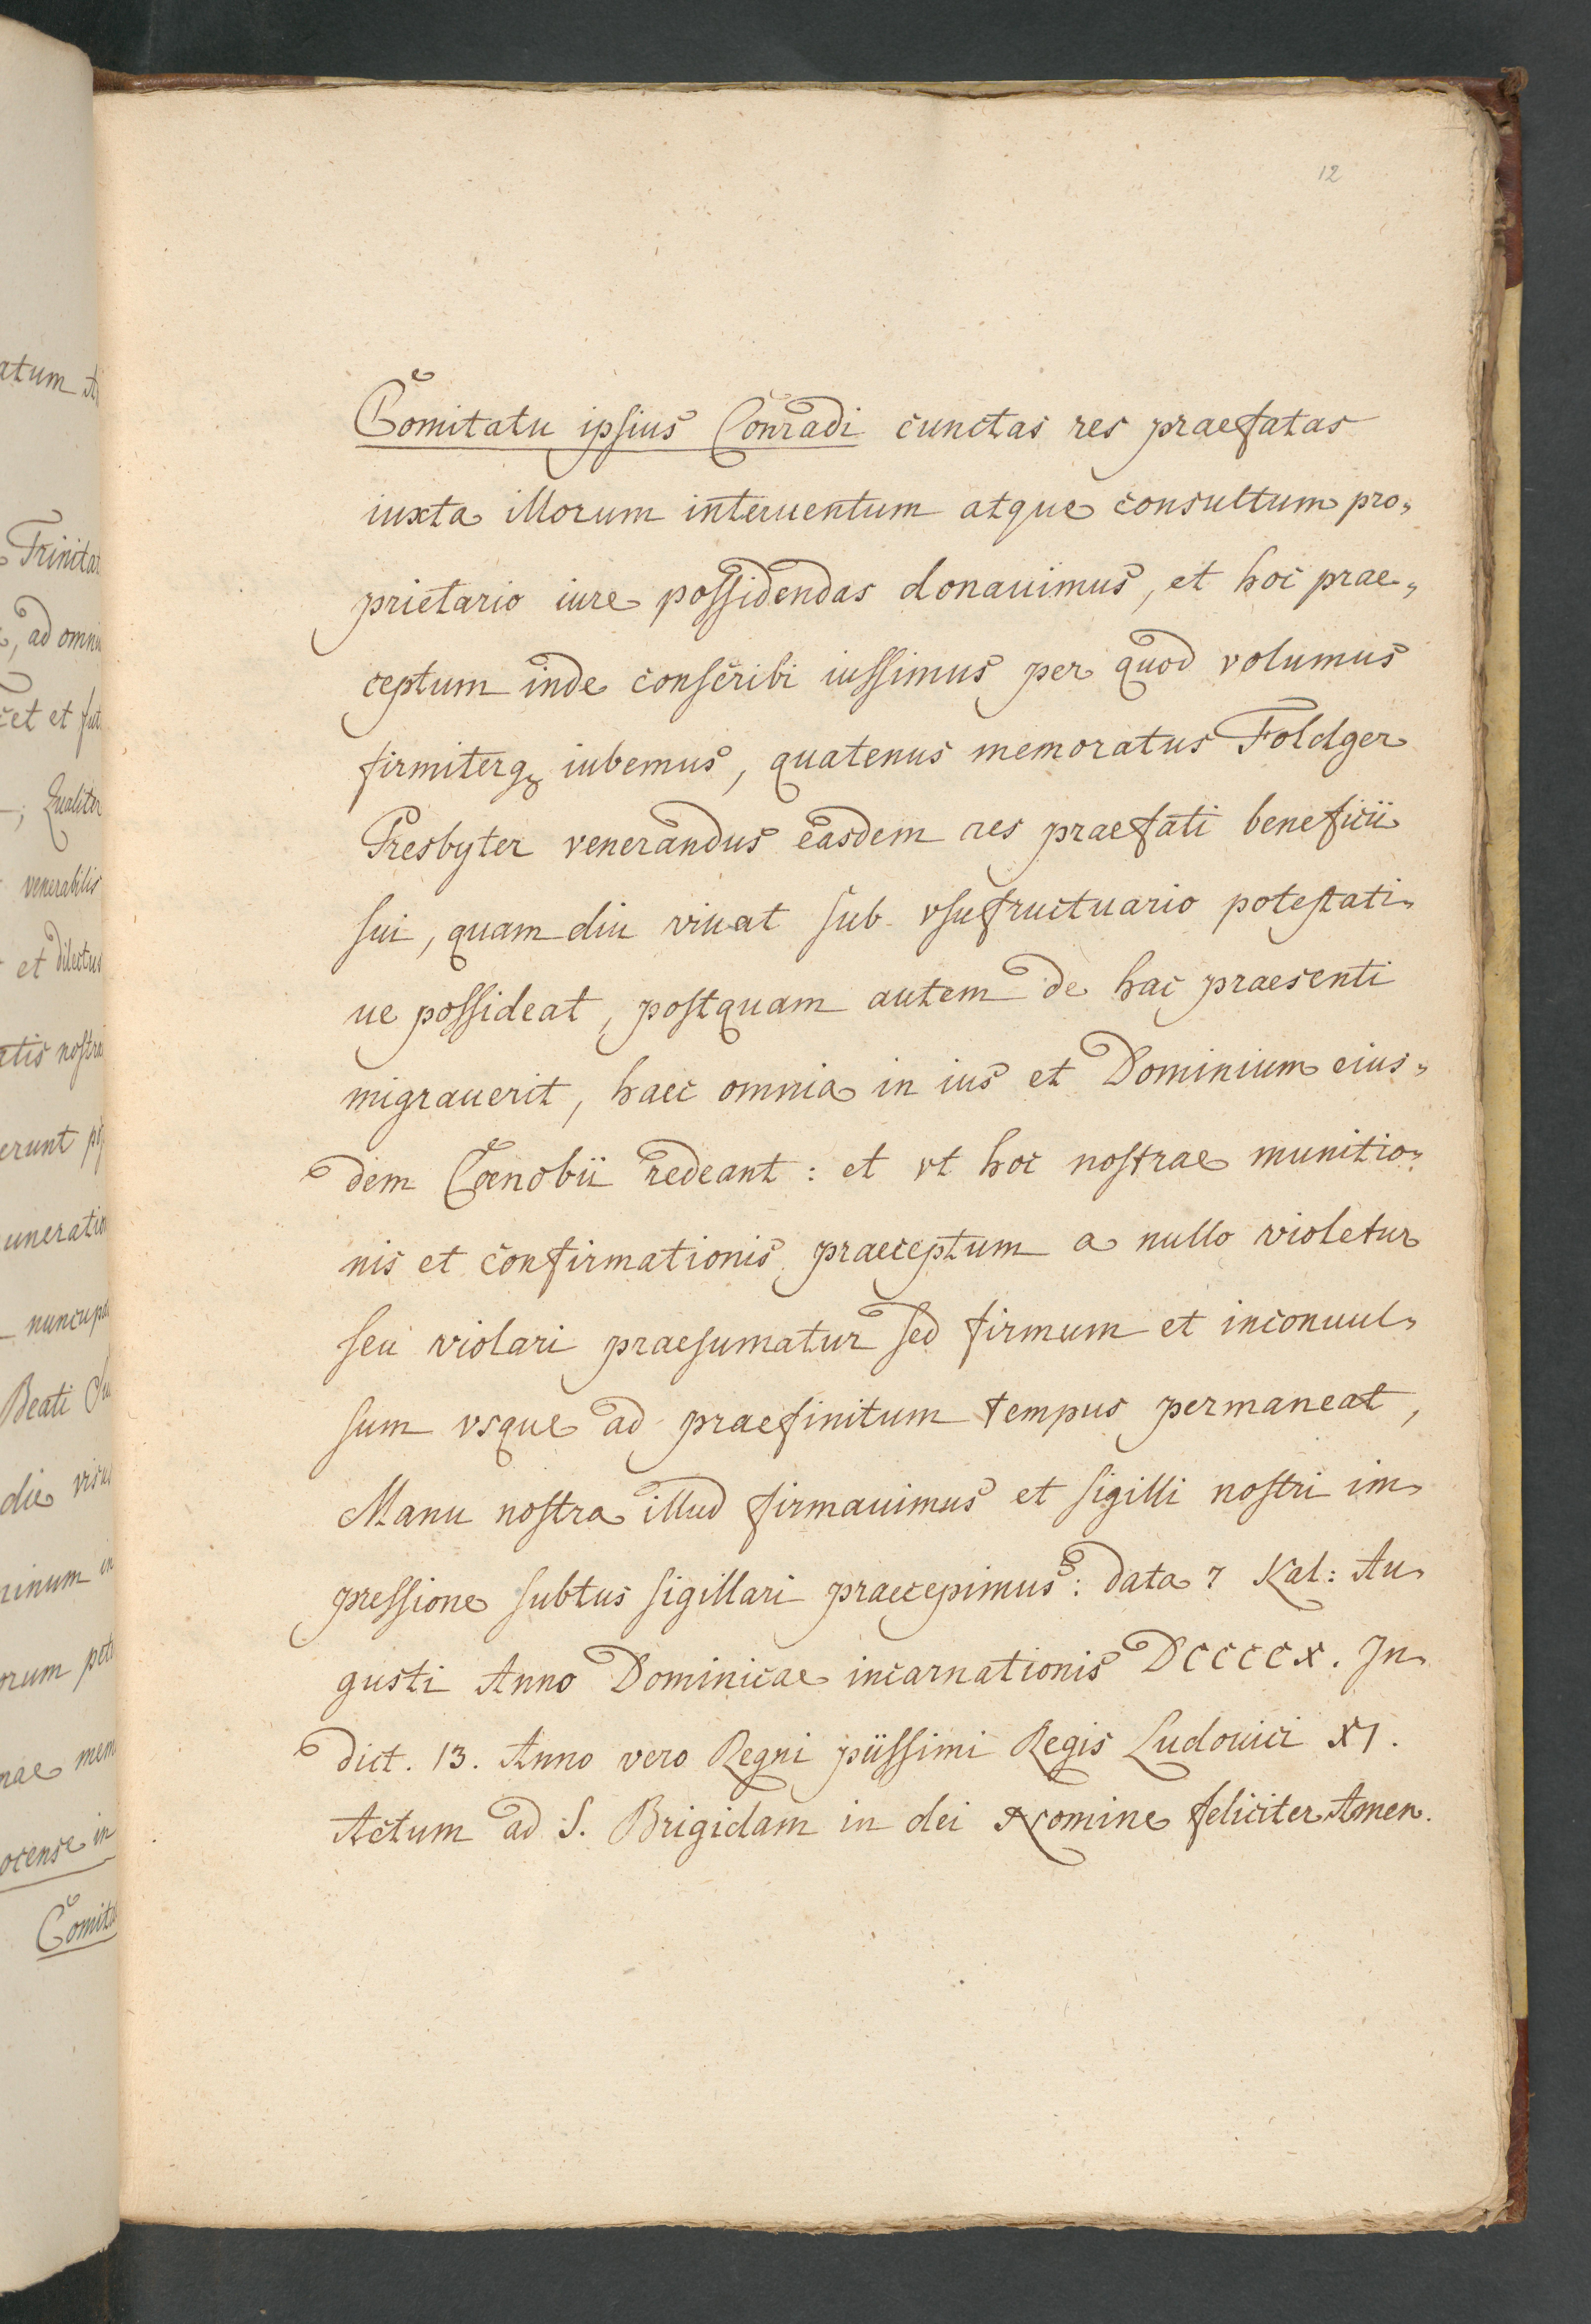 12
Comitatu ipsius Conradi cunctas res praefatas
iuxta illorum interuentum atque consultum pro„
prietario iure possidendas donauimus, et hoc prae„
ceptum inde conscribi iussimus per quod volumus
firmiterq; iubemus, quatenus memoratus Foldger
Presbyter venerandus easdem res praefati beneficii
sui, quam diu viuat sub vsufructuario potestati„
ue possideat, postquam autem de hac praesenti
migrauerit, haec omnia in ius et Dominium eius„
dem Coenobii redeant: et vt hoc nostrae munitio„
nis et confirmationis praeceptum a nullo violetur
seu violari praesumatur sed firmum et inconuul„
sum vsque ad praefinitum tempus permaneat,
Manu nostra illud firmauimus et sigilli nostri im„
pressione subtus sigillari praecepimus: data 7 Kal: Au„
gusti Anno Dominicae incarnationis DCCCCX. In„
dict. 13. Anno vero Regni piissimi Regis Ludouici XI.
Actum ad S. Brigidam in dei Nomine feliciter Amen.